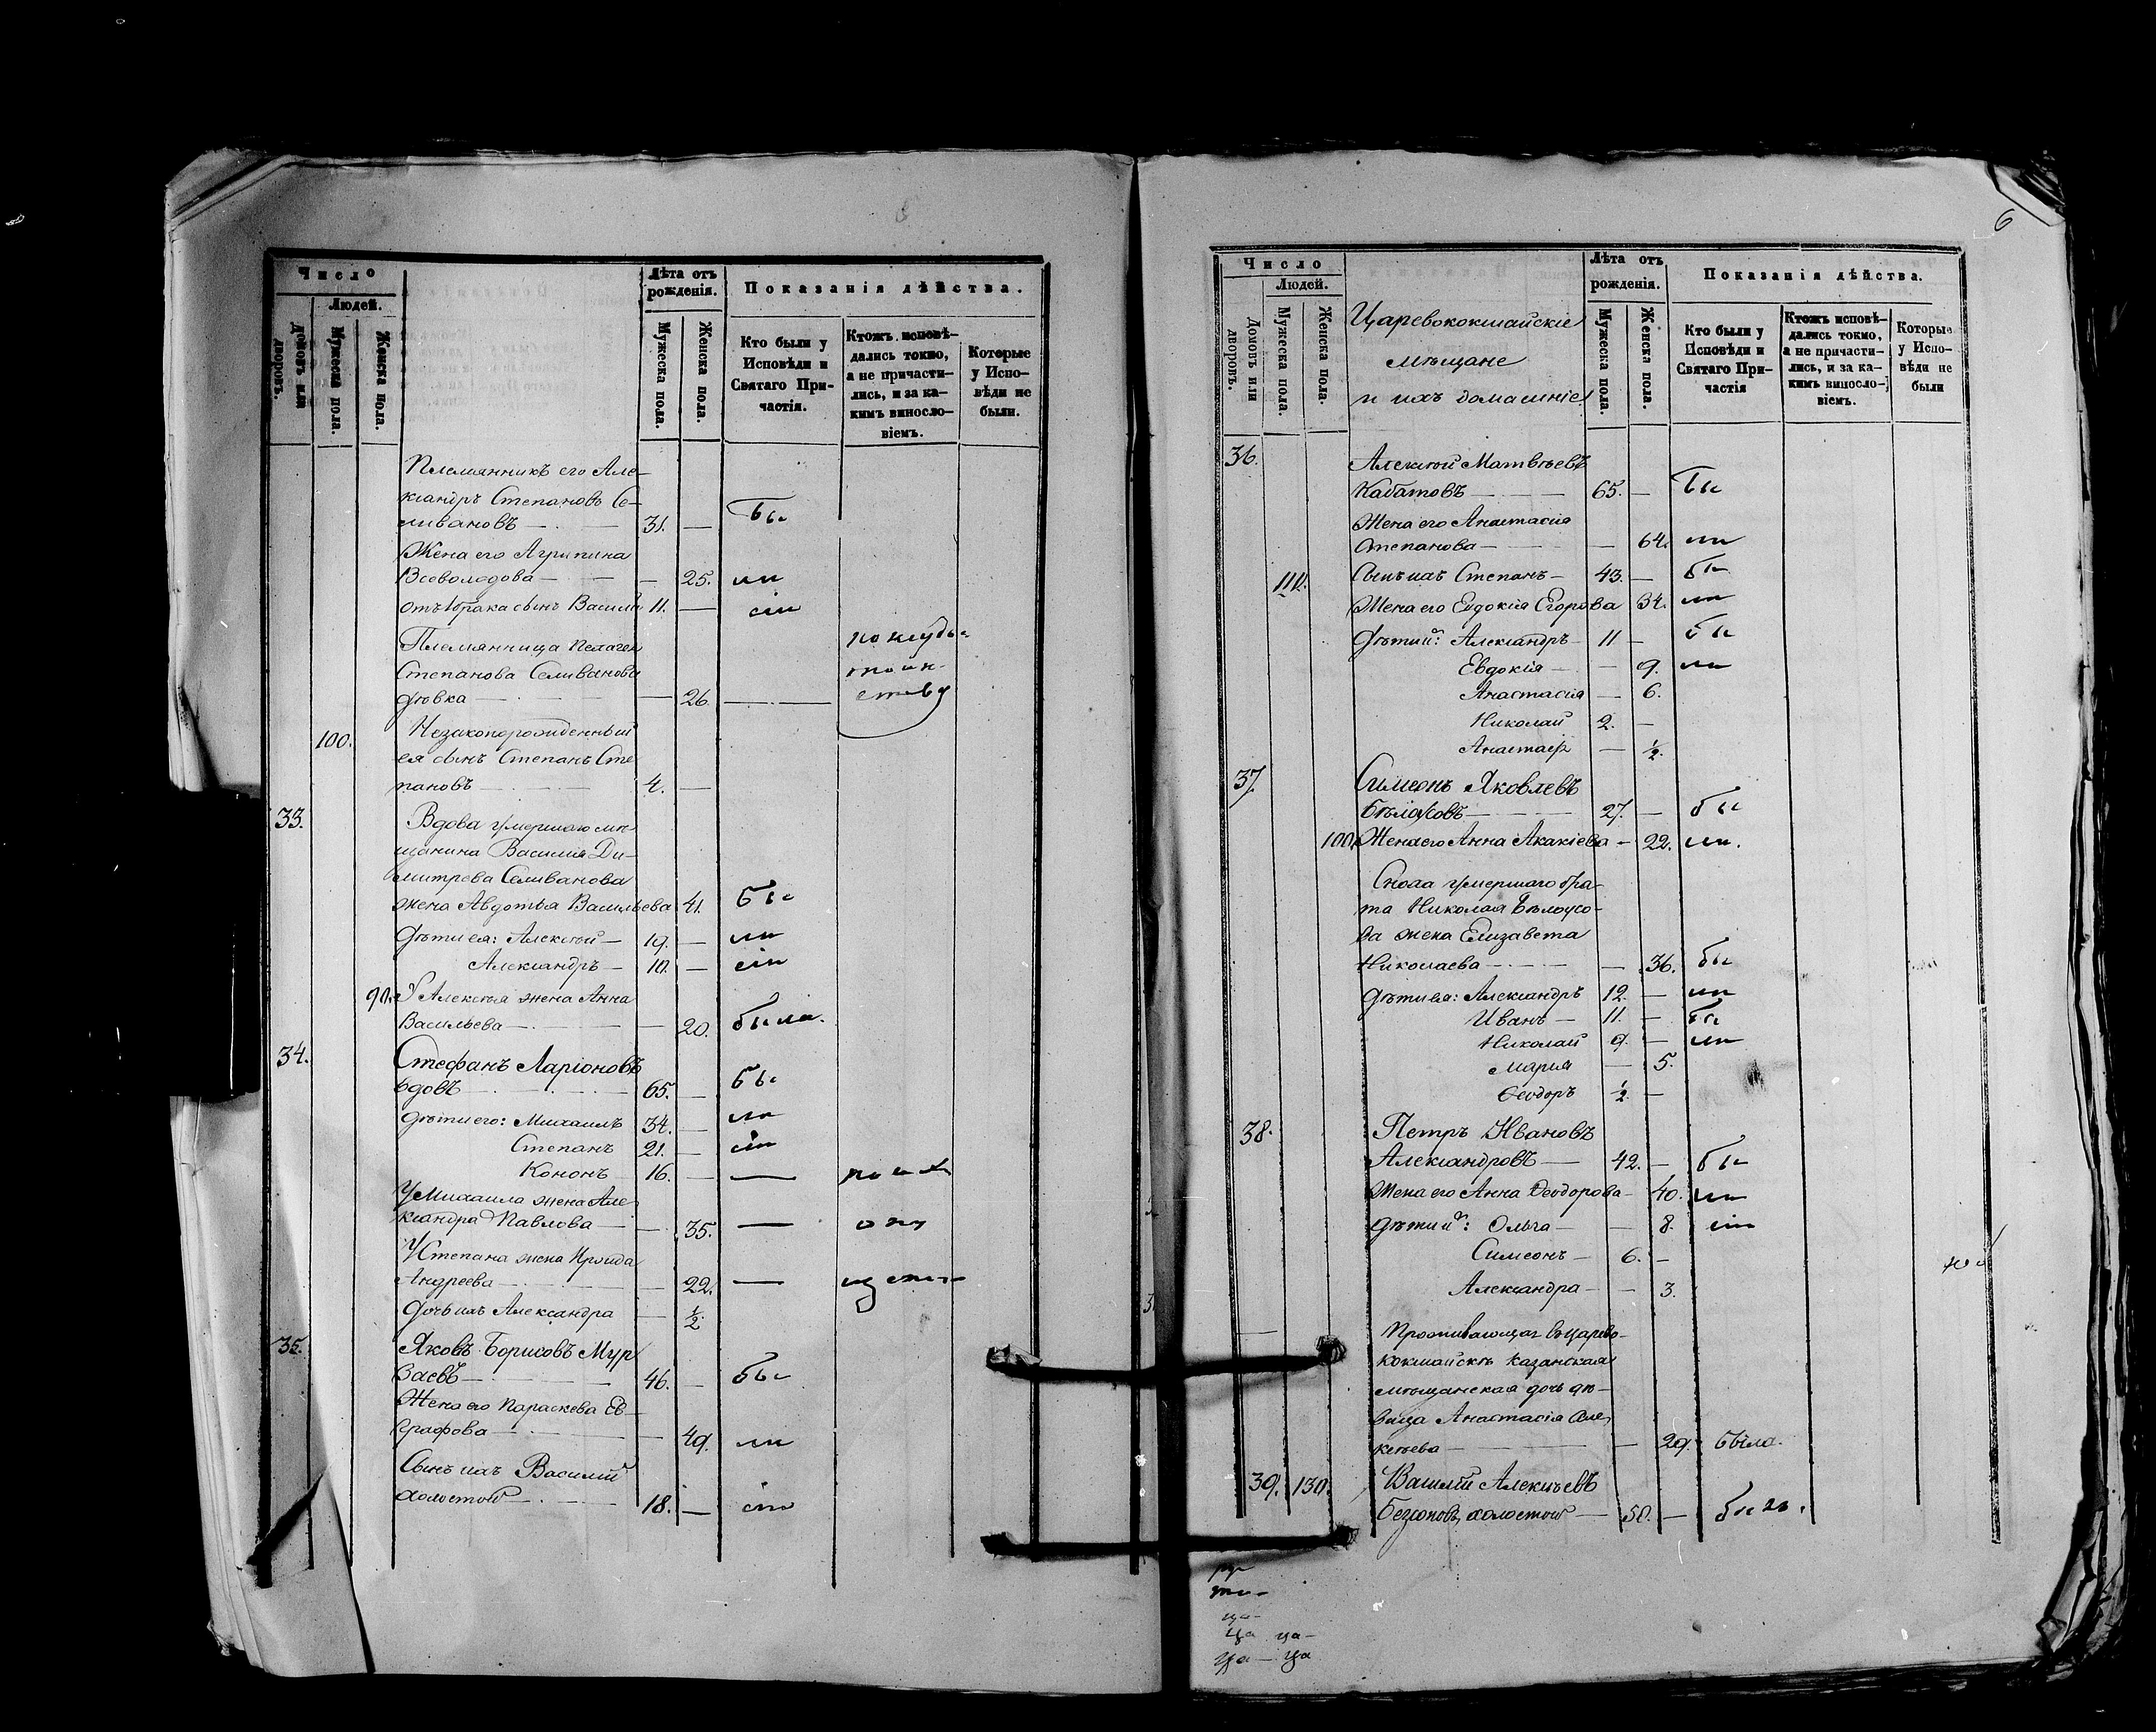 Число
Людей.
Домовъ или дворовъ.
Мужеска пола.
Женска пола.
Лѣта отъ рожденія.
Мужеска пола.
Женска пола.
Показанія дѣйства.
Кто были у
Исповѣди и
Святаго При-
частія.
Ктожъ исповѣ-
дались токмо,
а не причасти-
лись, и за ка-
кимъ винносло-
віемъ.
Которые
у Испо-
вѣди не
были.
Племянникъ его Але-
ксандръ Степановъ Се-
ливановъ — 31. — бы
Жена его Агрипина
Всеволодова — — 25. ли
отъ 1 брака сынъ Василій 11. — сіи
Племянница Пелагея
Степанова Селиванова
дѣвка — — 26. —
100. Незаконорожденный
ея сынъ Степанъ Сте
пановъ — 4. —
33. Вдова умершаго мѣ-
щанина Василія Ди-
митрева Селиванова
жена Авдотья Васильева 41. бы
Дѣти ея: Алексѣй — 19. — ли
Александръ — 10. — сіи
90. У Алексѣя жена Анна
Васильева — — 20. была.
34. Стефанъ Ларіоновъ
вдовъ — 65. — бы
Дѣти его: Михаилъ 34. — ли
Степанъ 21. — сіи
Кононъ 16. — —
У Михаила жена Але
ксандра Павлова — — 35. —
У Степана жена Ираида
Андреева — — 22. —
Дочь ихъ Александра — ½
35. Яковъ Борисовъ Мур
заевъ — 46. — бы
Жена его Параскева Ев-
графова — — 49. ли
Сынъ ихъ Василій
холостой — 18. — сіи
6
Число
Людей.
Домовъ или дворовъ.
Мужеска пола.
Женска пола.
Царевококшайскіе
мѣщане
и ихъ домашніе
Лѣта отъ рожденія.
Мужеска пола.
Женска пола.
Показанія дѣйства.
Кто были у
Исповѣди и
Святаго При-
частія
Ктожъ исповѣ-
дались токмо,
а не причасти-
лись, и за ка-
кимъ винносло-
віемъ.
Которые
у Испо-
вѣди не
были
36. Алексѣй Матвѣевъ
Кабатовъ — 65. — бы
Жена его Анастасія
Степанова — — 64. ли
110. Сынъ ихъ Степанъ — 43. — бы
Жена его Евдокія Егорова 34. ли
Дѣти ихъ: Александръ — 11 — бы
Евдокія — — 9. ли
Анастасія — 6.
Николай 2. —
Анастасія — ½.
37. Симеонъ Яковлевъ
Бѣлоусовъ — 27. — бы
100. Жена его Анна Акакіева — 22. ли.
Сноха умершаго бра-
та Николая Бѣлоусо-
ва жена Елизавета
Николаева — — 36. бы
Дѣти ея: Александръ 12. — ли
Иванъ — 11. — бы
Николай 9. — ли
Марія — 5.
Ѳеодоръ ½ —
38. Петръ Ивановъ
Александровъ — 42. — бы
Жена его Анна Ѳеодорова — 40. ли
Дѣти ихъ: Ольга — — 8. сіи
Симеонъ — 6. —
Александра — — 3.
Проживающая въ Царево-
кокшайскѣ Казанская
мѣщанская дочь дѣ-
вица Анастасія Але
ксѣева — — 29. была.
39. 130. Василій Алексѣевъ
холостой — 50. — былъ.